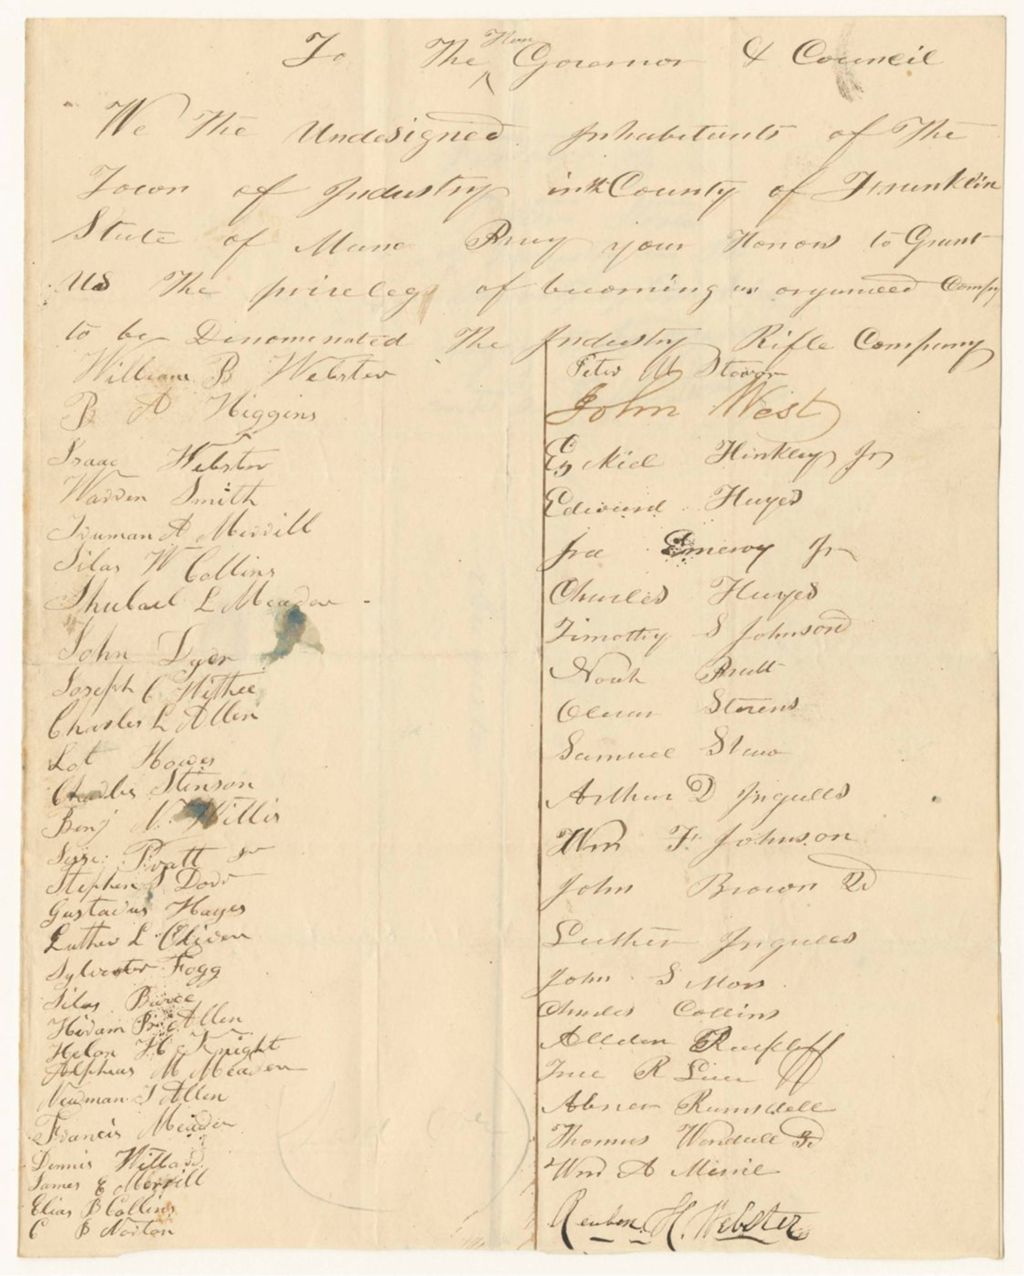 To The Hon Governor & Council
We The Undesigned Inhabitants of The
Town of Industry in the County of Franklin
State of Maine Pray your Honors to Grant
us The privileg of becoming an organized Compy
to be Denominated The Industry Rifle Company
William B Webster
B A Higgins
Isaac Webster
Warren Smith
Truman A Merrill
Silas W Collins
Shubael L Meader
John Dyer
Joseph C Withee
Charles L Allen
Lot Howes
Charles Stinson
Benj N. Willis
Pratt Jr
Stephen Dorr
Gustavus Hayes
Luther L Cliven
Sylvester Fogg
Silas Burce
Hiram Allen
Helon H Knight
Alpheus M Meader
Newman T Allen
Francis Meader
Dennis Willard
James E Merrill
Elias B Collins
C B Norton
Peter W Stover
John West
Hinkley Jr
Edward Hayes
Ira Emerey Jr
Charles Hayes
Timothy S Johnson
Noah Pratt
Oliver Stevens
Samuel Shaw
Arthur D Ingulls
Wm F Johnson
John Brown 2d
Luther Ingulls
John S Mors
Charles Collins
Allden
True R Luce
Abner Rumsdell
Thomas Wendell Jr
Wm A
Reuben H. Webster